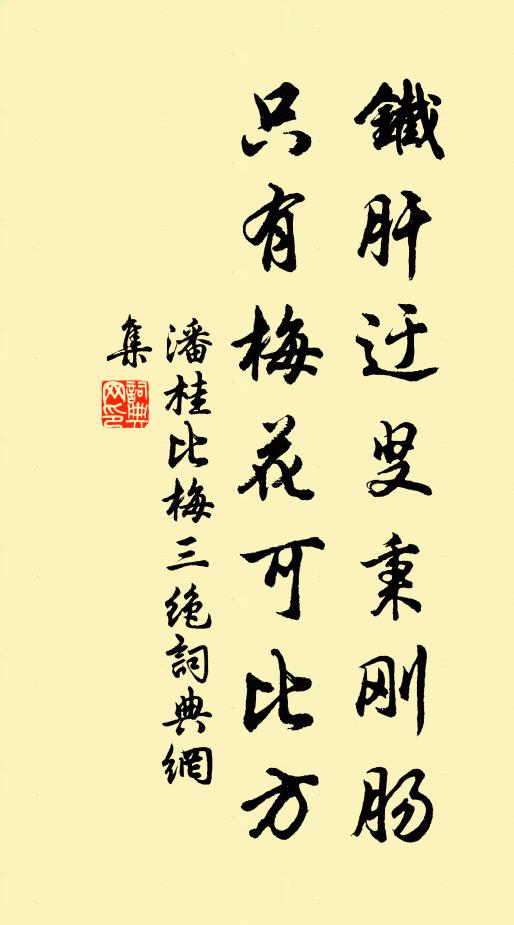 鐵肝迂叟秉刚肠
只有梅花可比方
潘桂比梅三绝詞典網
集
詞典網印